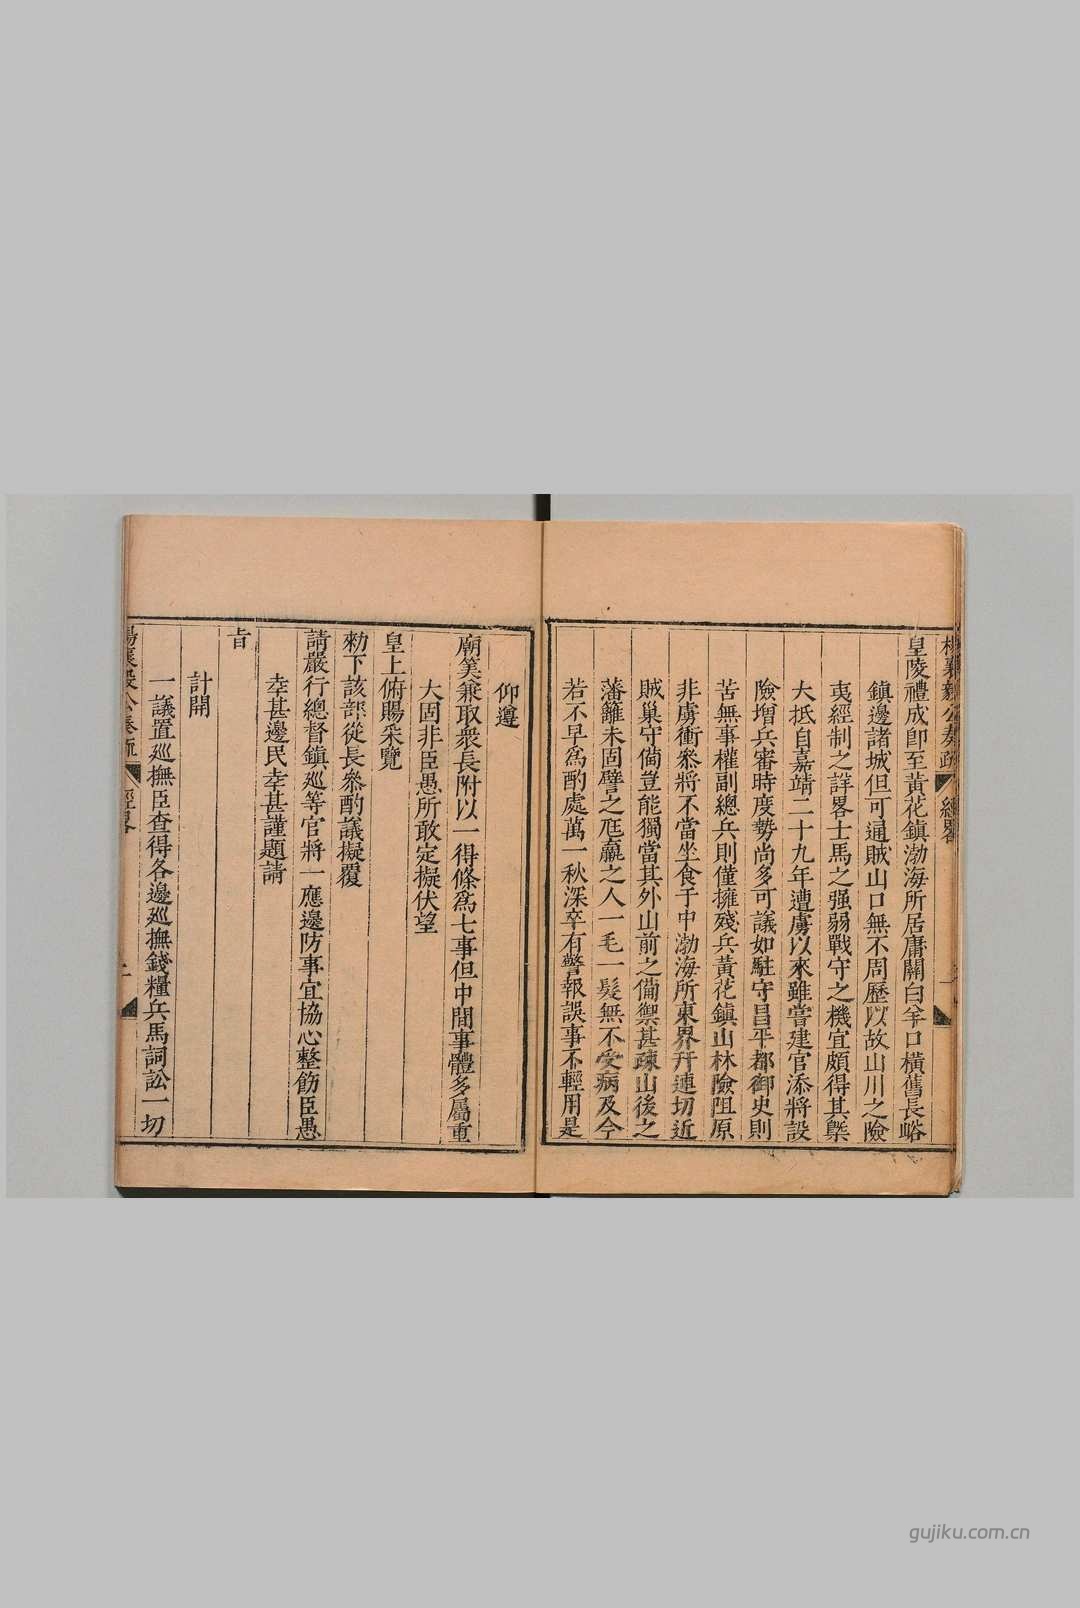 楊襄毅公奏疏 經畧 一
皇陵禮成卽至黃花鎮渤海所居庸關白羊口橫舊長峪
鎮邊諸城但可通賊山口無不周歷以故山川之險
夷經制之詳畧士馬之强弱戰守之機宜頗得其槩
大抵自嘉靖二十九年遭虜以來雖嘗建官添將設
險增兵審時度勢尚多可議如駐守昌平都御史則
苦無事權副總兵則僅擁殘兵黃花鎮山林險阻原
非虜衝叅將不當坐食于中渤海所東界幵連切近
賊巢守僃豈能獨當其外山前之僃禦甚疎山後之
藩籬未固譬之尫羸之人一毛一髮無不受病及今
若不早爲酌處萬一秋深卒有警報誤事不輕用是
仰遵
廟筭兼取衆長附以一得條爲七事但中間事體多屬重
大固非臣愚所敢定擬伏望
皇上俯賜采覽
勑下該部從長叅酌議擬覆
請嚴行總督鎮巡等官將一應邊防事宜協心整飭臣愚
幸甚邊民幸甚謹題請
旨
計開
一議置廵撫臣查得各邊廵撫錢糧兵馬詞訟一切
楊襄毅公奏疏 經畧 二
gujiku.com.cn